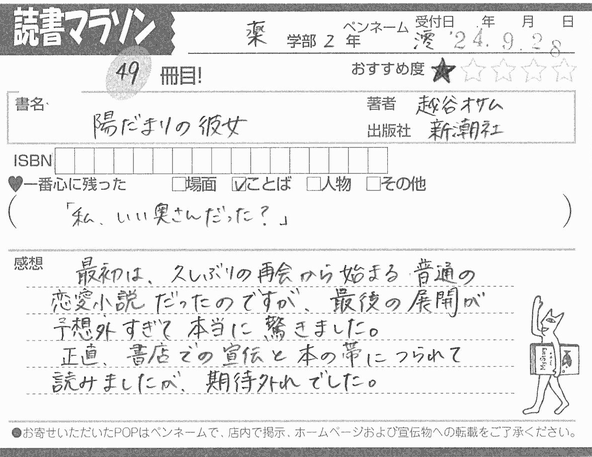 読書マラソン
薬 学部 2 年 ペンネーム 澪 受付日 年 月 日 '24.9.28
49 冊目!
おすすめ度 ★☆☆☆☆
書名 陽だまりの彼女
著者 越谷オサム
出版社 新潮社
ISBN
♥一番心に残った □場面 ☑ことば □人物 □その他
(「私、いい奥さんだった?」)
感想 最初は、久しぶりの再会から始まる普通の
恋愛小説だったのですが、最後の展開が
予想外すぎて本当に驚きました。
正直、書店での宣伝と本の帯につられて
読みましたが、期待外れでした。
●お寄せいただいたPOPはペンネームで、店内で掲示、ホームページおよび宣伝物への転載をご了承ください。